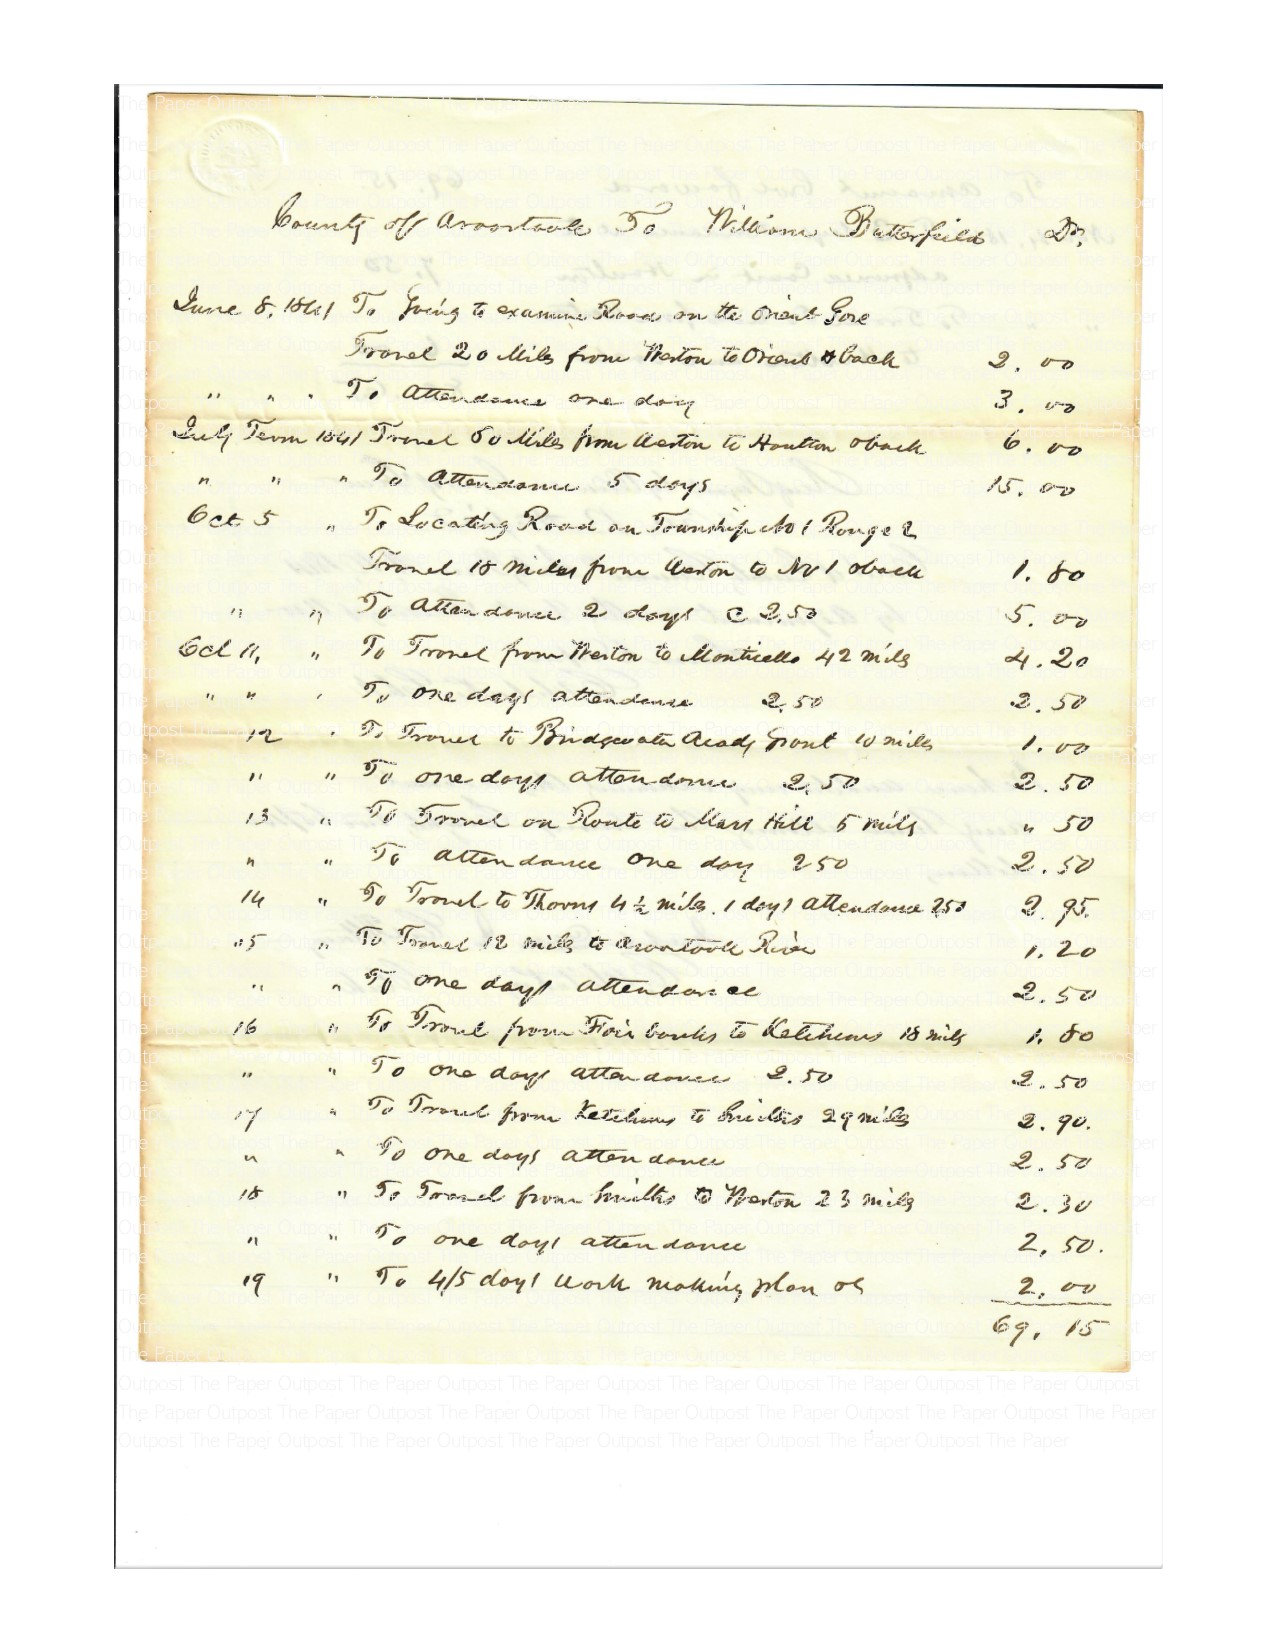 County of Aroostook To William Butterfield Dr.
June 8, 1841 To Going to examine Road on the Orient Gore
Travel 20 Miles from Weston to Orient & back 2.00
" " " To Attendance one day 3.00
July Term 1841 Travel 60 Miles from Weston to Houlton & back 6.00
" " " To Attendance 5 days 15.00
Oct 5 " To Locating Road on Township No 1 Range 2
Travel 18 miles from Weston to No 1 & back 1.80
" " To Attendance 2 days @ 2.50 5.00
Oct 11, " To Travel from Weston to Monticello 42 mils 4.20
" " " To one days attendance 2.50 2.50
12 " To Travel to Bridgewater Acady Grant 10 miles 1.00
" " To one days attendance 2.50 2.50
13 " To Travel on Route to Mars Hill 5 mils " 50
" " To attendance one day 250 2.50
14 " To Travel to Thorns 4 ½ mils. 1 days attendance 250 2.95
15 " To Travel 12 mils to Aroostook River 1.20
" " To one days attendance 2.50
16 " To Travel from Fairbanks to Ketchums 18 mils 1.80
" " To one days attendance 2.50 2.50
17 " To Travel from Ketchums to Smiths 29 miles 2.90.
" " To one days attendance 2.50
18 " To Travel from Smiths to Weston 23 mils 2.30
" " To one days attendance 2.50.
19 " To 4/5 days work making plan &c 2.00
69.15